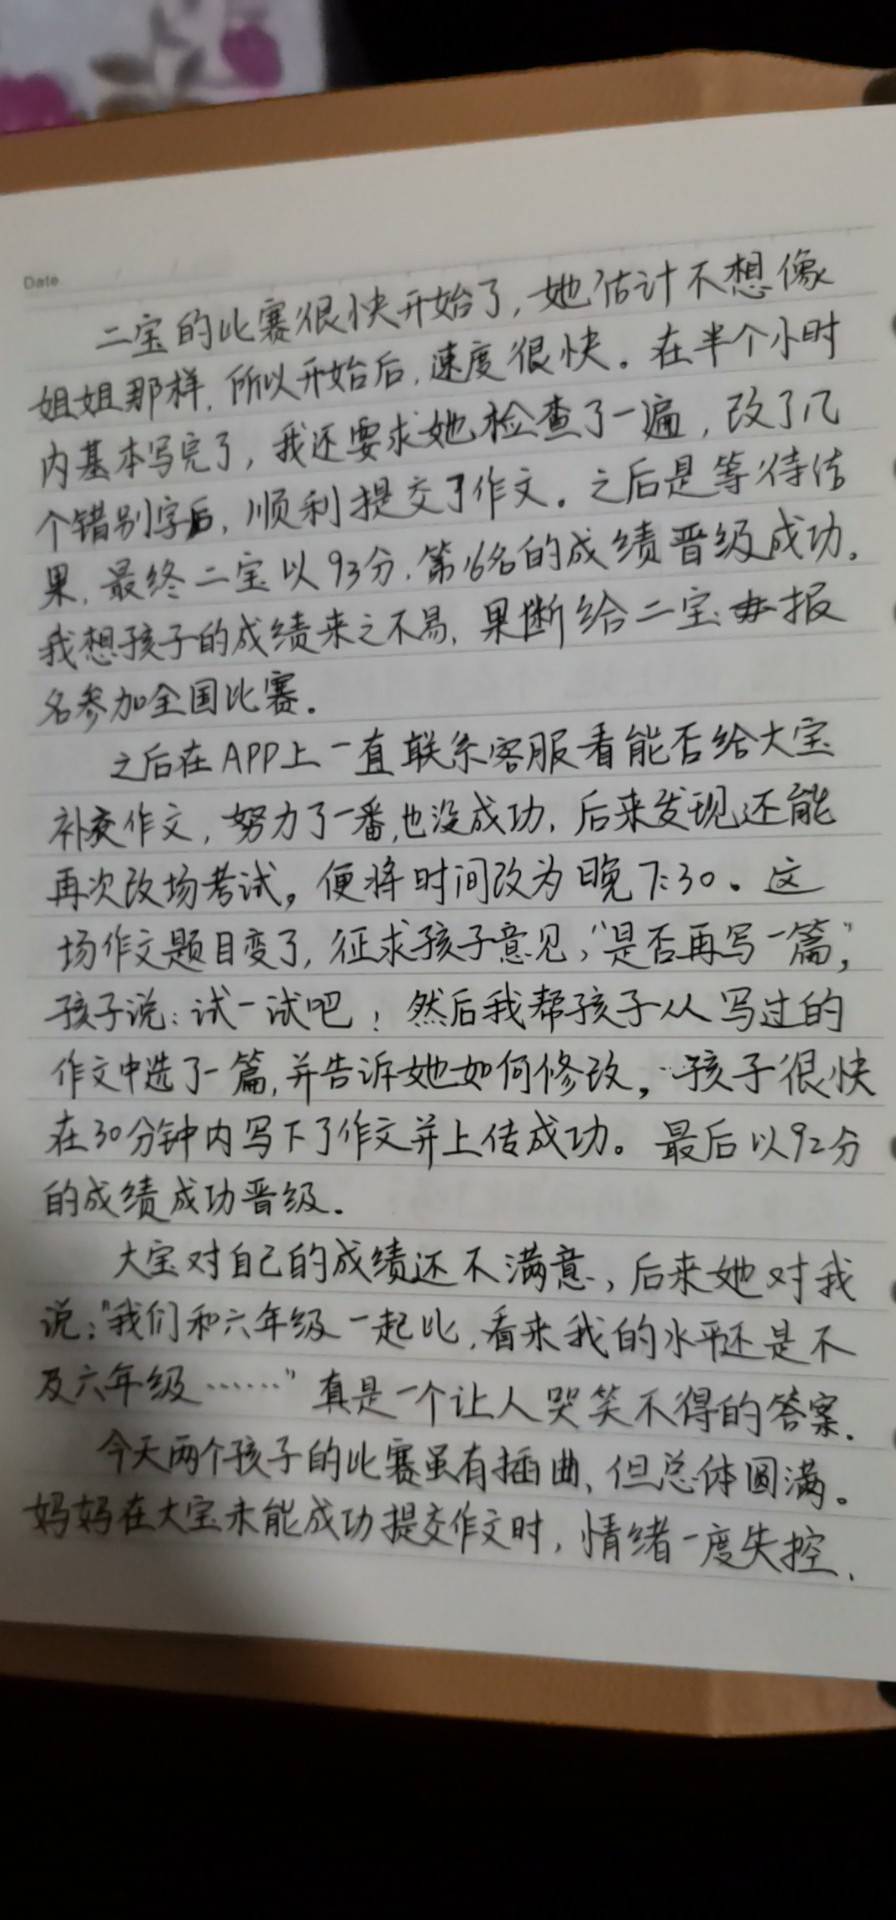 Date
二宝的比赛很快开始了，她估计不想像
姐姐那样，所以开始后，速度很快。在半个小时
内基本写完了，我还要求她检查了一遍，改了几
个错别字后，顺利提交了作文。之后是等待结
果，最终二宝以93分，第16名的成绩晋级成功。
我想孩子的成绩来之不易，果断给二宝报
名参加全国比赛。
之后在APP上一直联系客服看能否给大宝
补交作文，努力了一番，也没成功，后来发现还能
再次改场考试，便将时间改为晚7:30。这
场作文题目变了，征求孩子意见，“是否再写一篇”，
孩子说：试一试吧！然后我帮孩子从写过的
作文中选了一篇，并告诉她如何修改，孩子很快
在30分钟内写下了作文并上传成功。最后以92分
的成绩成功晋级。
大宝对自己的成绩还不满意，后来她对我
说：“我们和六年级一起比，看来我的水平还是不
及六年级……”真是一个让人哭笑不得的答案。
今天两个孩子的比赛虽有插曲，但总体圆满。
妈妈在大宝未能成功提交作文时，情绪一度失控，